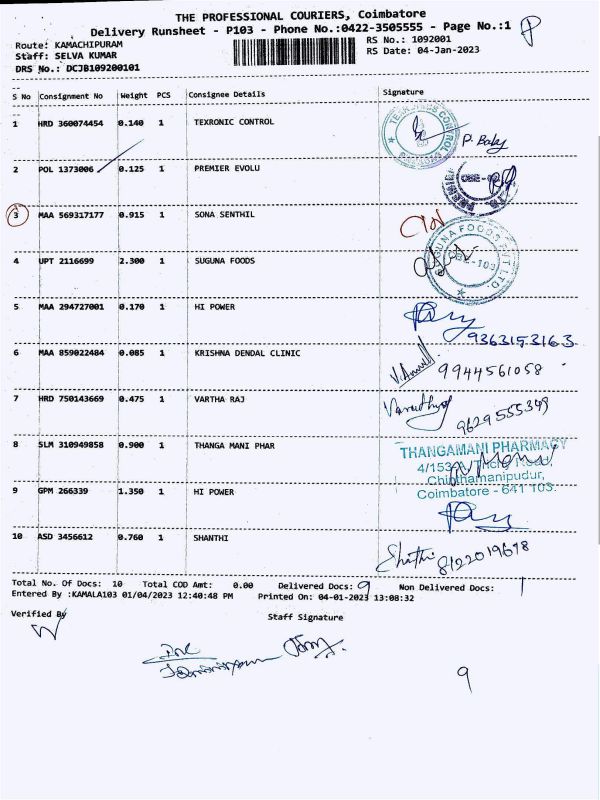 THE PROFESSIONAL COURIERS, Coimbatore
Delivery Runsheet - P103 - Phone No.:0422-3505555 - Page No.:1
Route: KAMACHIPURAM RS No.: 1092001
Staff: SELVA KUMAR RS Date: 04-Jan-2023
DRS No.: DCJB109200101
S No Consignment No Weight PCS Consignee Details Signature
1 HRD 360074454 0.140 1 TEXRONIC CONTROL P. Baby
2 POL 1373006 0.125 1 PREMIER EVOLU
3 MAA 569317177 0.915 1 SONA SENTHIL
4 UPT 2116699 2.300 1 SUGUNA FOODS
SUGUNA FOODS PVT LTD.
CBE-103
5 MAA 294727001 0.170 1 HI POWER
9363153163
6 MAA 859022484 0.085 1 KRISHNA DENDAL CLINIC
9944561058
7 HRD 750143669 0.475 1 VARTHA RAJ
9629555349
8 SLM 310949858 0.900 1 THANGA MANI PHAR
THANGAMANI PHARMACY
4/153 Road,
Chinthamanipudur,
Coimbatore - 641 103.
9 GPM 266339 1.350 1 HI POWER
10 ASD 3456612 0.760 1 SHANTHI
8122019678
Total No. Of Docs: 10 Total COD Amt: 0.00 Delivered Docs: 9 Non Delivered Docs: 1
Entered By :KAMALA103 01/04/2023 12:40:48 PM Printed On: 04-01-2023 13:08:32
Verified By Staff Signature
9